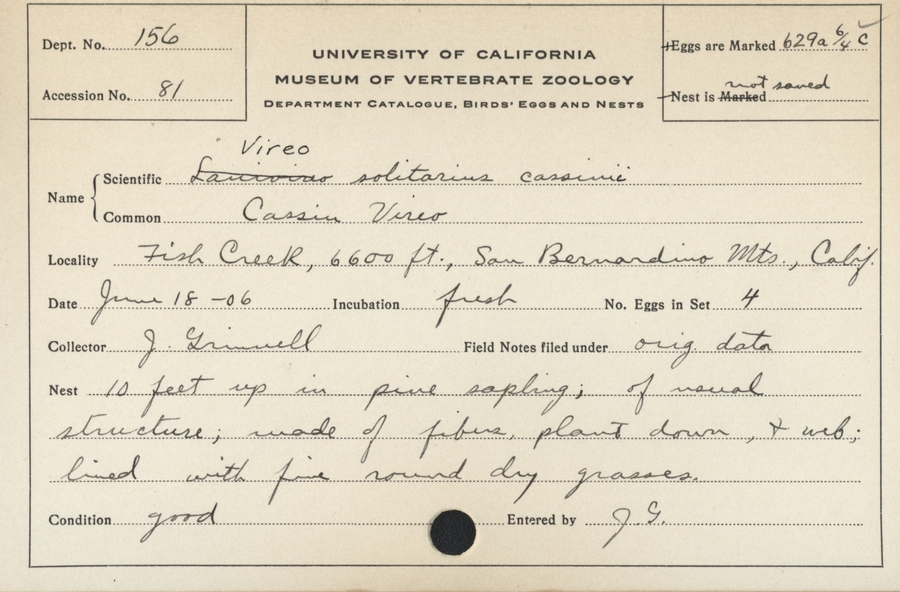 Dept. No. 156
Accession No. 81
UNIVERSITY OF CALIFORNIA
MUSEUM OF VERTEBRATE ZOOLOGY
DEPARTMENT CATALOGUE, BIRDS' EGGS AND NESTS
Eggs are Marked 629a 6/4 C
not saved
Nest is Marked
Vireo
Name
Scientific Lanivireo solitarius cassinii
Common Cassin Vireo
Locality Fish Creek, 6600 ft., San Bernardino Mts., Calif.
Date June 18 -06 Incubation fresh No. Eggs in Set 4
Collector J. Grinnell Field Notes filed under orig. data
Nest 10 feet up in pine sapling; of usual
structure; made of fibers, plant down, & web;
lined with fine round dry grasses.
Condition good Entered by J.G.